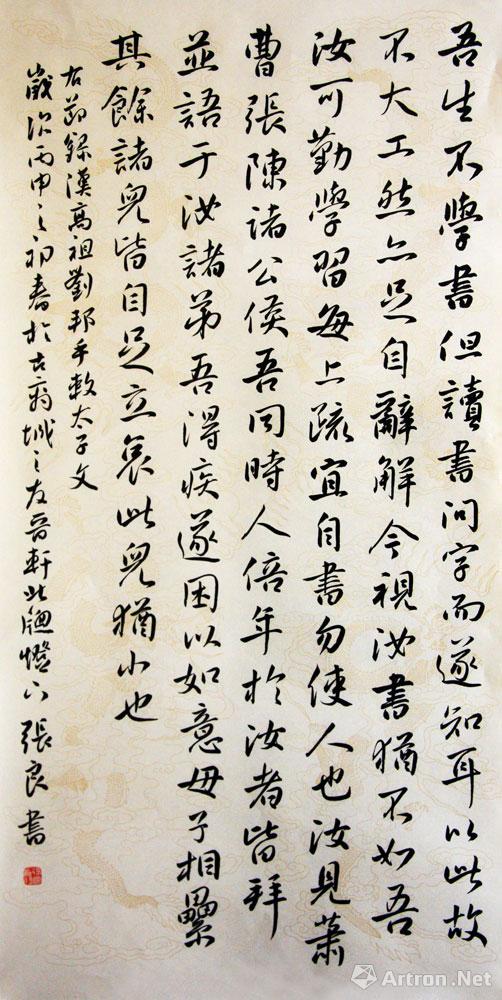 吾生不學書但讀書問字而遂知耳以此故
不大工然亦足自辭解今視汝書猶不如吾
汝可勤學習每上疏宜自書勿使人也汝見蕭
曹張陳諸公侯吾同時人倍年於汝者皆拜
並語于汝諸弟吾得疾遂困以如意母子相累
其餘諸兒皆自足立哀此兒猶小也
右節錄漢高祖劉邦手敕太子文
歲次丙申之初春於古城之友晉軒北牕燈下張良書
Artron.Net